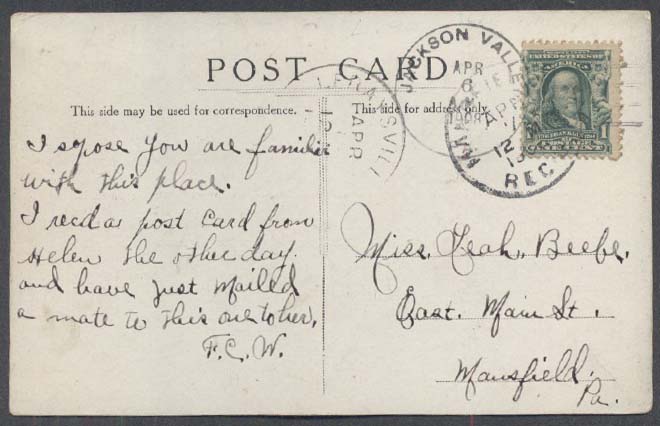 POST CARD
This side may be used for correspondence.
This side for address only.
JACKSON VALLE
APR
6
1908
APR
12
REC
APR
UNITED STATES OF
AMERICA
1
POSTAGE
I spose you are familiar
with this place.
I recd a post card from
Helen the other day.
and have just mailed
a mate to this one to her.
F.C.W.
Miss, Leah, Beebe,
East. Main St.
Mansfield.
Pa.